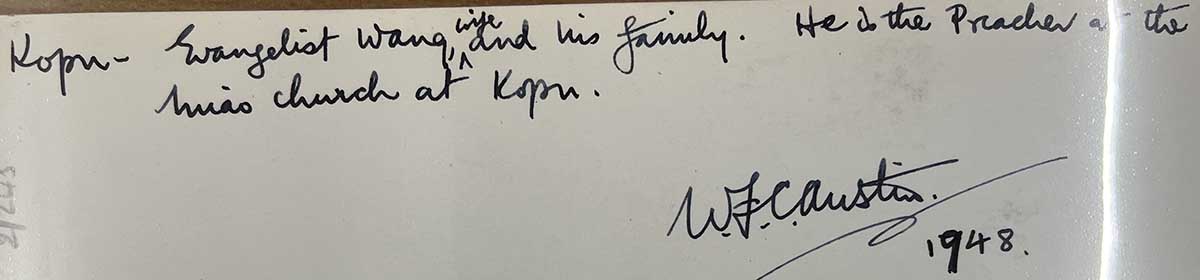 Kopu- Evangelist Wang, wife and his family. He is the Preacher at the
Miao church at Kopu.
W.F.C. Austin.
1948.
2/243